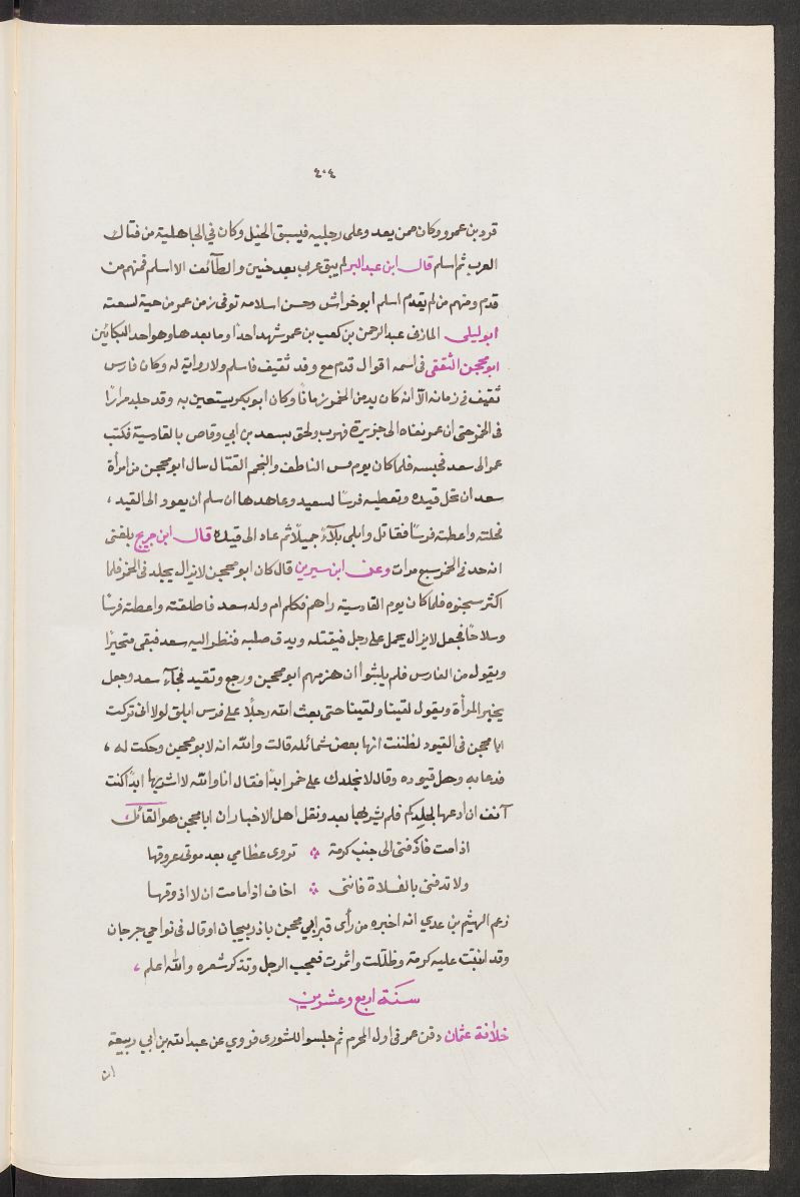 ٤٠٤
قرد بن عمرو وكان ممن يعدو على رجليه فيسبق الخيل وكان في الجاهلية من فتاك
العرب ثم اسلم قال ابن عبد البر لم يبق عربي بعد حنين والطآئف الا اسلم فمنهم من
قدم ومنهم من لم يقدم اسلم ابو خراش وحسن اسلامه توفى زمن عمر من حية لسعته
ابو ليلى المازنى عبد الرحمن بن كعب بن عمر شهد احدا وما بعدها وهو احد البكائين
ابو محجن الثقفى فى اسمه اقوال قدم مع وفد ثقيف فاسلم ولا رواية له وكان فارس
ثقيف فى زمانه الآ انه كان يدمن الخمر زمانا وكان ابو بكر يستعين به وقد جلد مرارا
فى الخمر حتى ان عمر نفاه الى جزيرة فهرب ولحق بسعد بن ابي وقاص بالقادسية فكتب
عمر الى سعد فحبسه فلما كان يوم قس الناطف والتحم القتال سال ابو محجن من امرأة
سعد ان تحل قيده وتعطيه فرسا لسعيد وعاهدها ان سلم ان يعود الى القيد ،
فحلته واعطته فرسا فقاتل وابلى بلآءً جميلا ثم عاد الى قيده قال ابن جريج بلغنى
انه حد فى الخمر سبع مرات وعن ابن سيرين قال كان ابو محجن لا يزال يجلد فى الخمر فلما
اكثر سجنوه فلما كان يوم القادسية راهم فكلم ام ولد سعد فاطلقته واعطته فرسا
وسلاحا فجعل لا يزال يحمل على رجل فيقتله ويدق صلبه فنظر اليه سعد فبقى متحيرا
ويقول من الفارس فلم يلبثوا ان هزمهم ابو محجن ورجع وتقيد فجآء سعد وجعل
يخبر المرأة ويقول لقينا ولقينا حتى بعث الله رجلا على فرس ابلق لولا انى تركت
ابا محجن فى القيود لظننت انها بعض شمائله قالت والله انه لابو محجن وحكت له ،
فدعا به وحل قيوده وقال لا نجلدك على خمر ابدا فقال انا والله لا اشربها ابدا كنت
آنف ان ادعها لجلدكم فلم يشربها بعد ونقل اهل الاخبار ان ابا محجن هو القائل
اذا مت فادفنى الى جنب كرمة ؞ تروى عظامي بعد موتى عروقها
ولا تدفنى بالفلاة فاننى ؞ اخاف اذا ما مت ان لا اذوقها
زعم الهيثم بن عدي انه اخبره من رأى قبر ابي محجن باذربيجان او قال فى نواحي جرجان
وقد نبتت عليه كرمة وظللت واثمرت فعجب الرجل وتذكر شعره والله اعلم ،
سنة اربع وعشرين
خلافة عثمان دفن عمر فى اول المحرم ثم جلسوا للشورى فروي عن عبد الله بن ابي ربيعة
ان